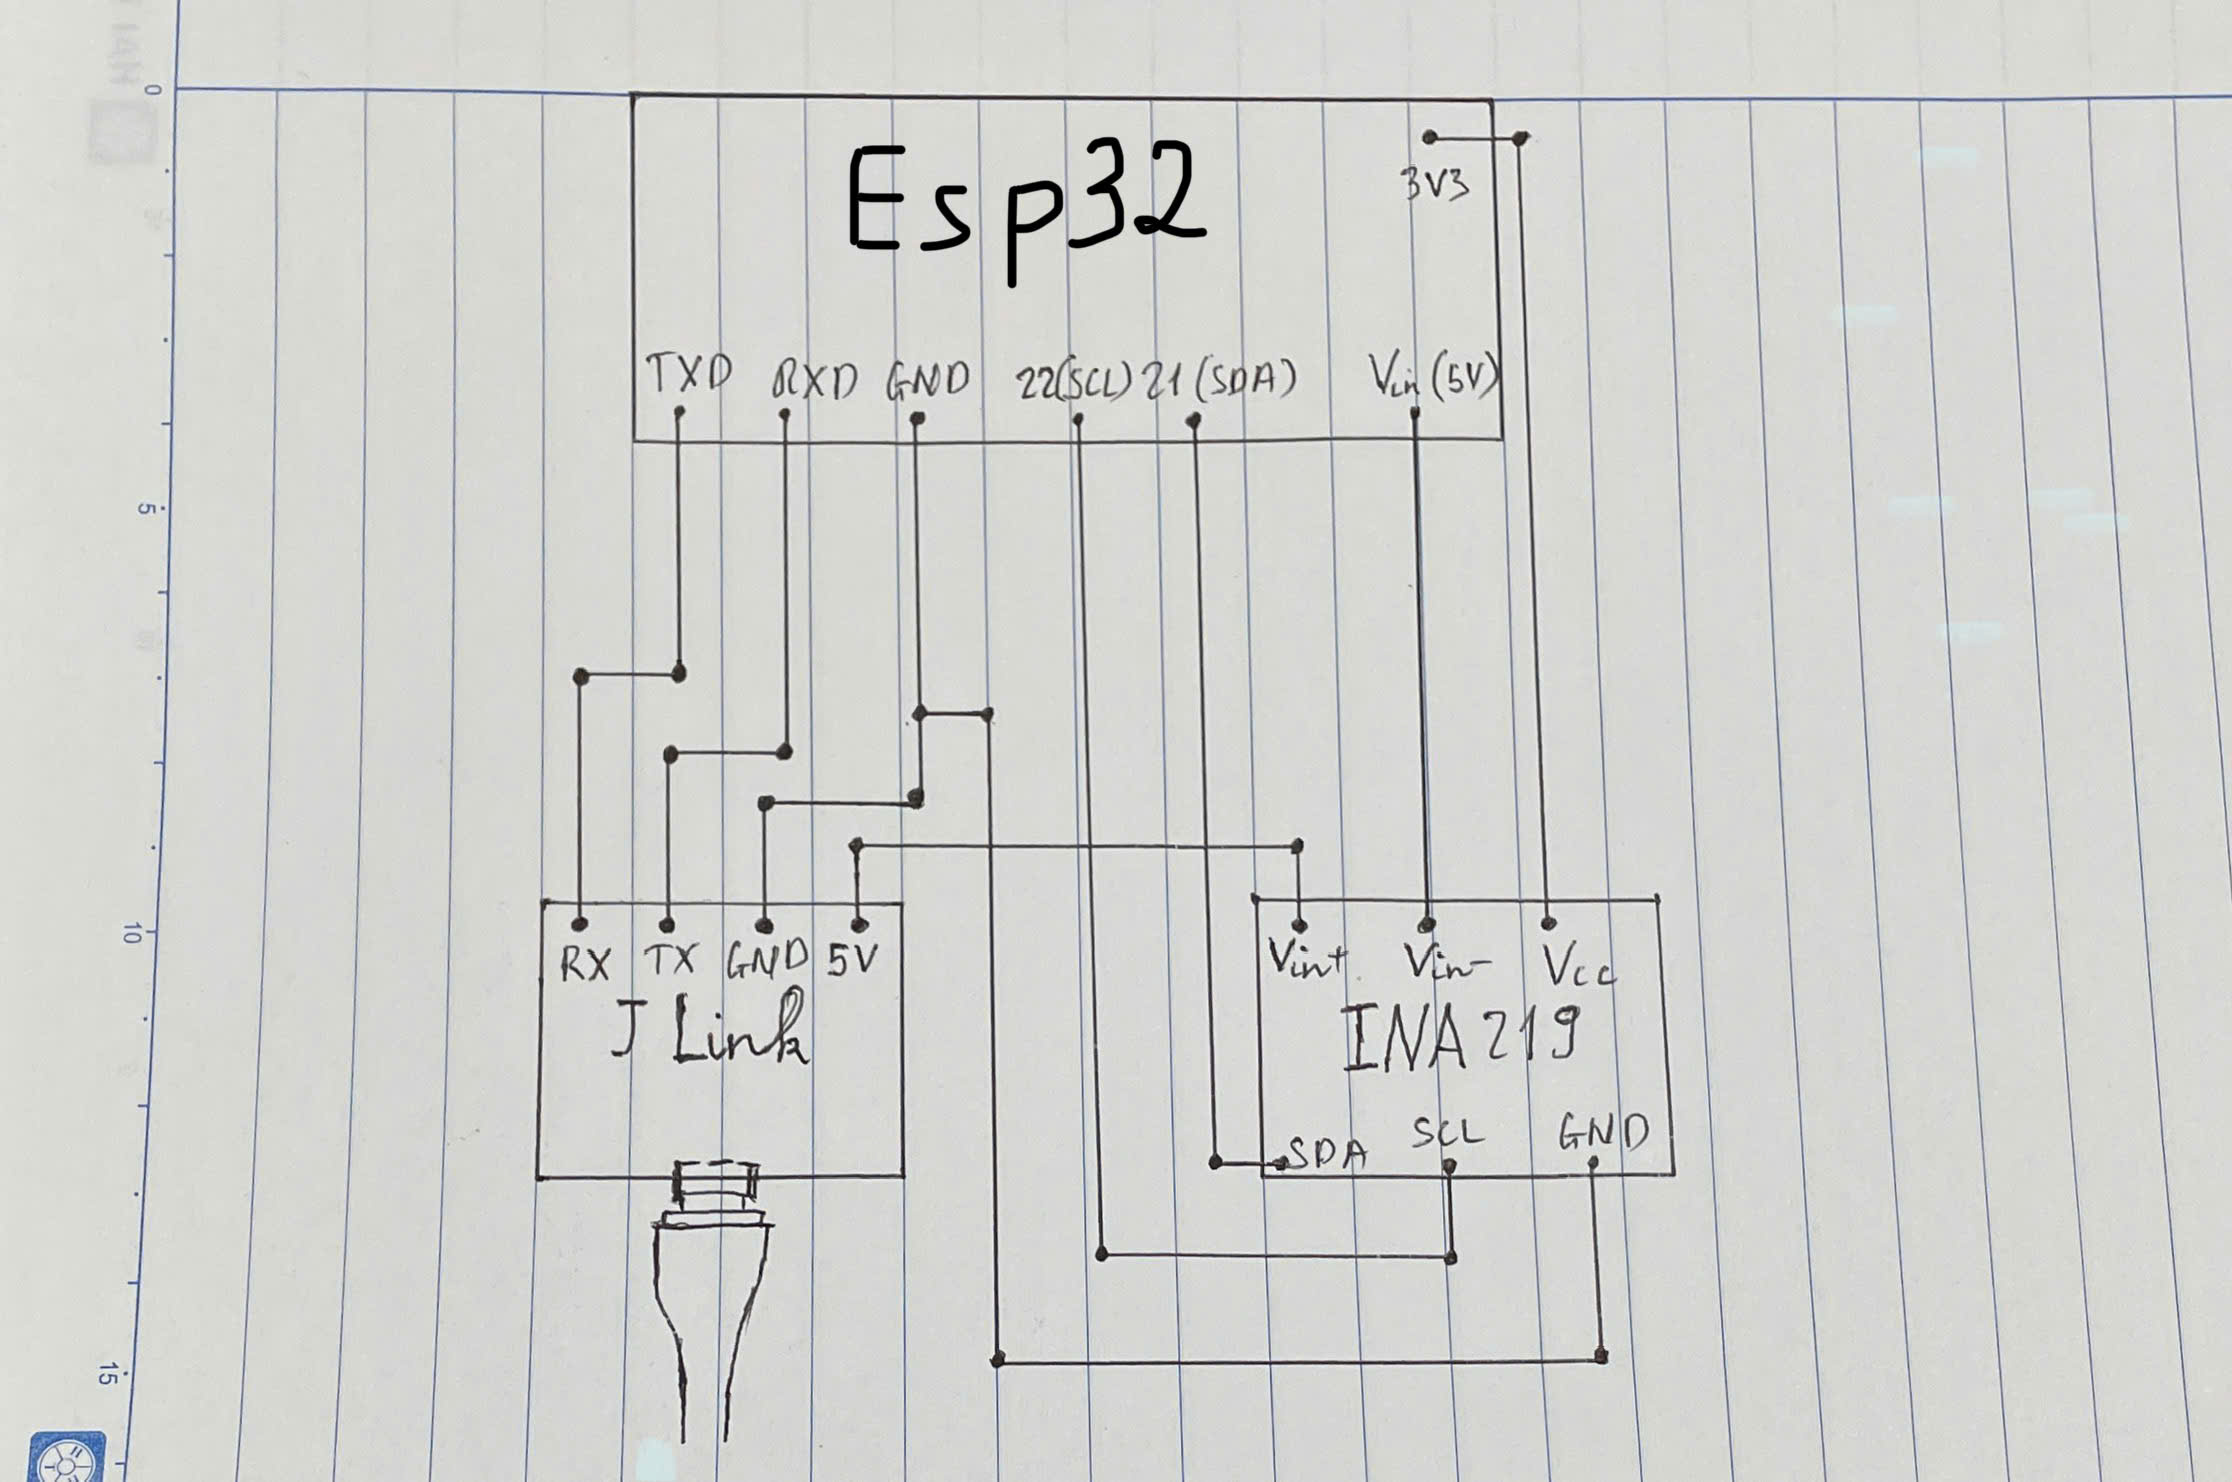 0
5
10
15
Esp32
3V3
TXD RXD GND 22(SCL) 21(SDA) Vin(5V)
RX TX GND 5V
J Link
Vin+ Vin- Vcc
INA219
SDA SCL GND